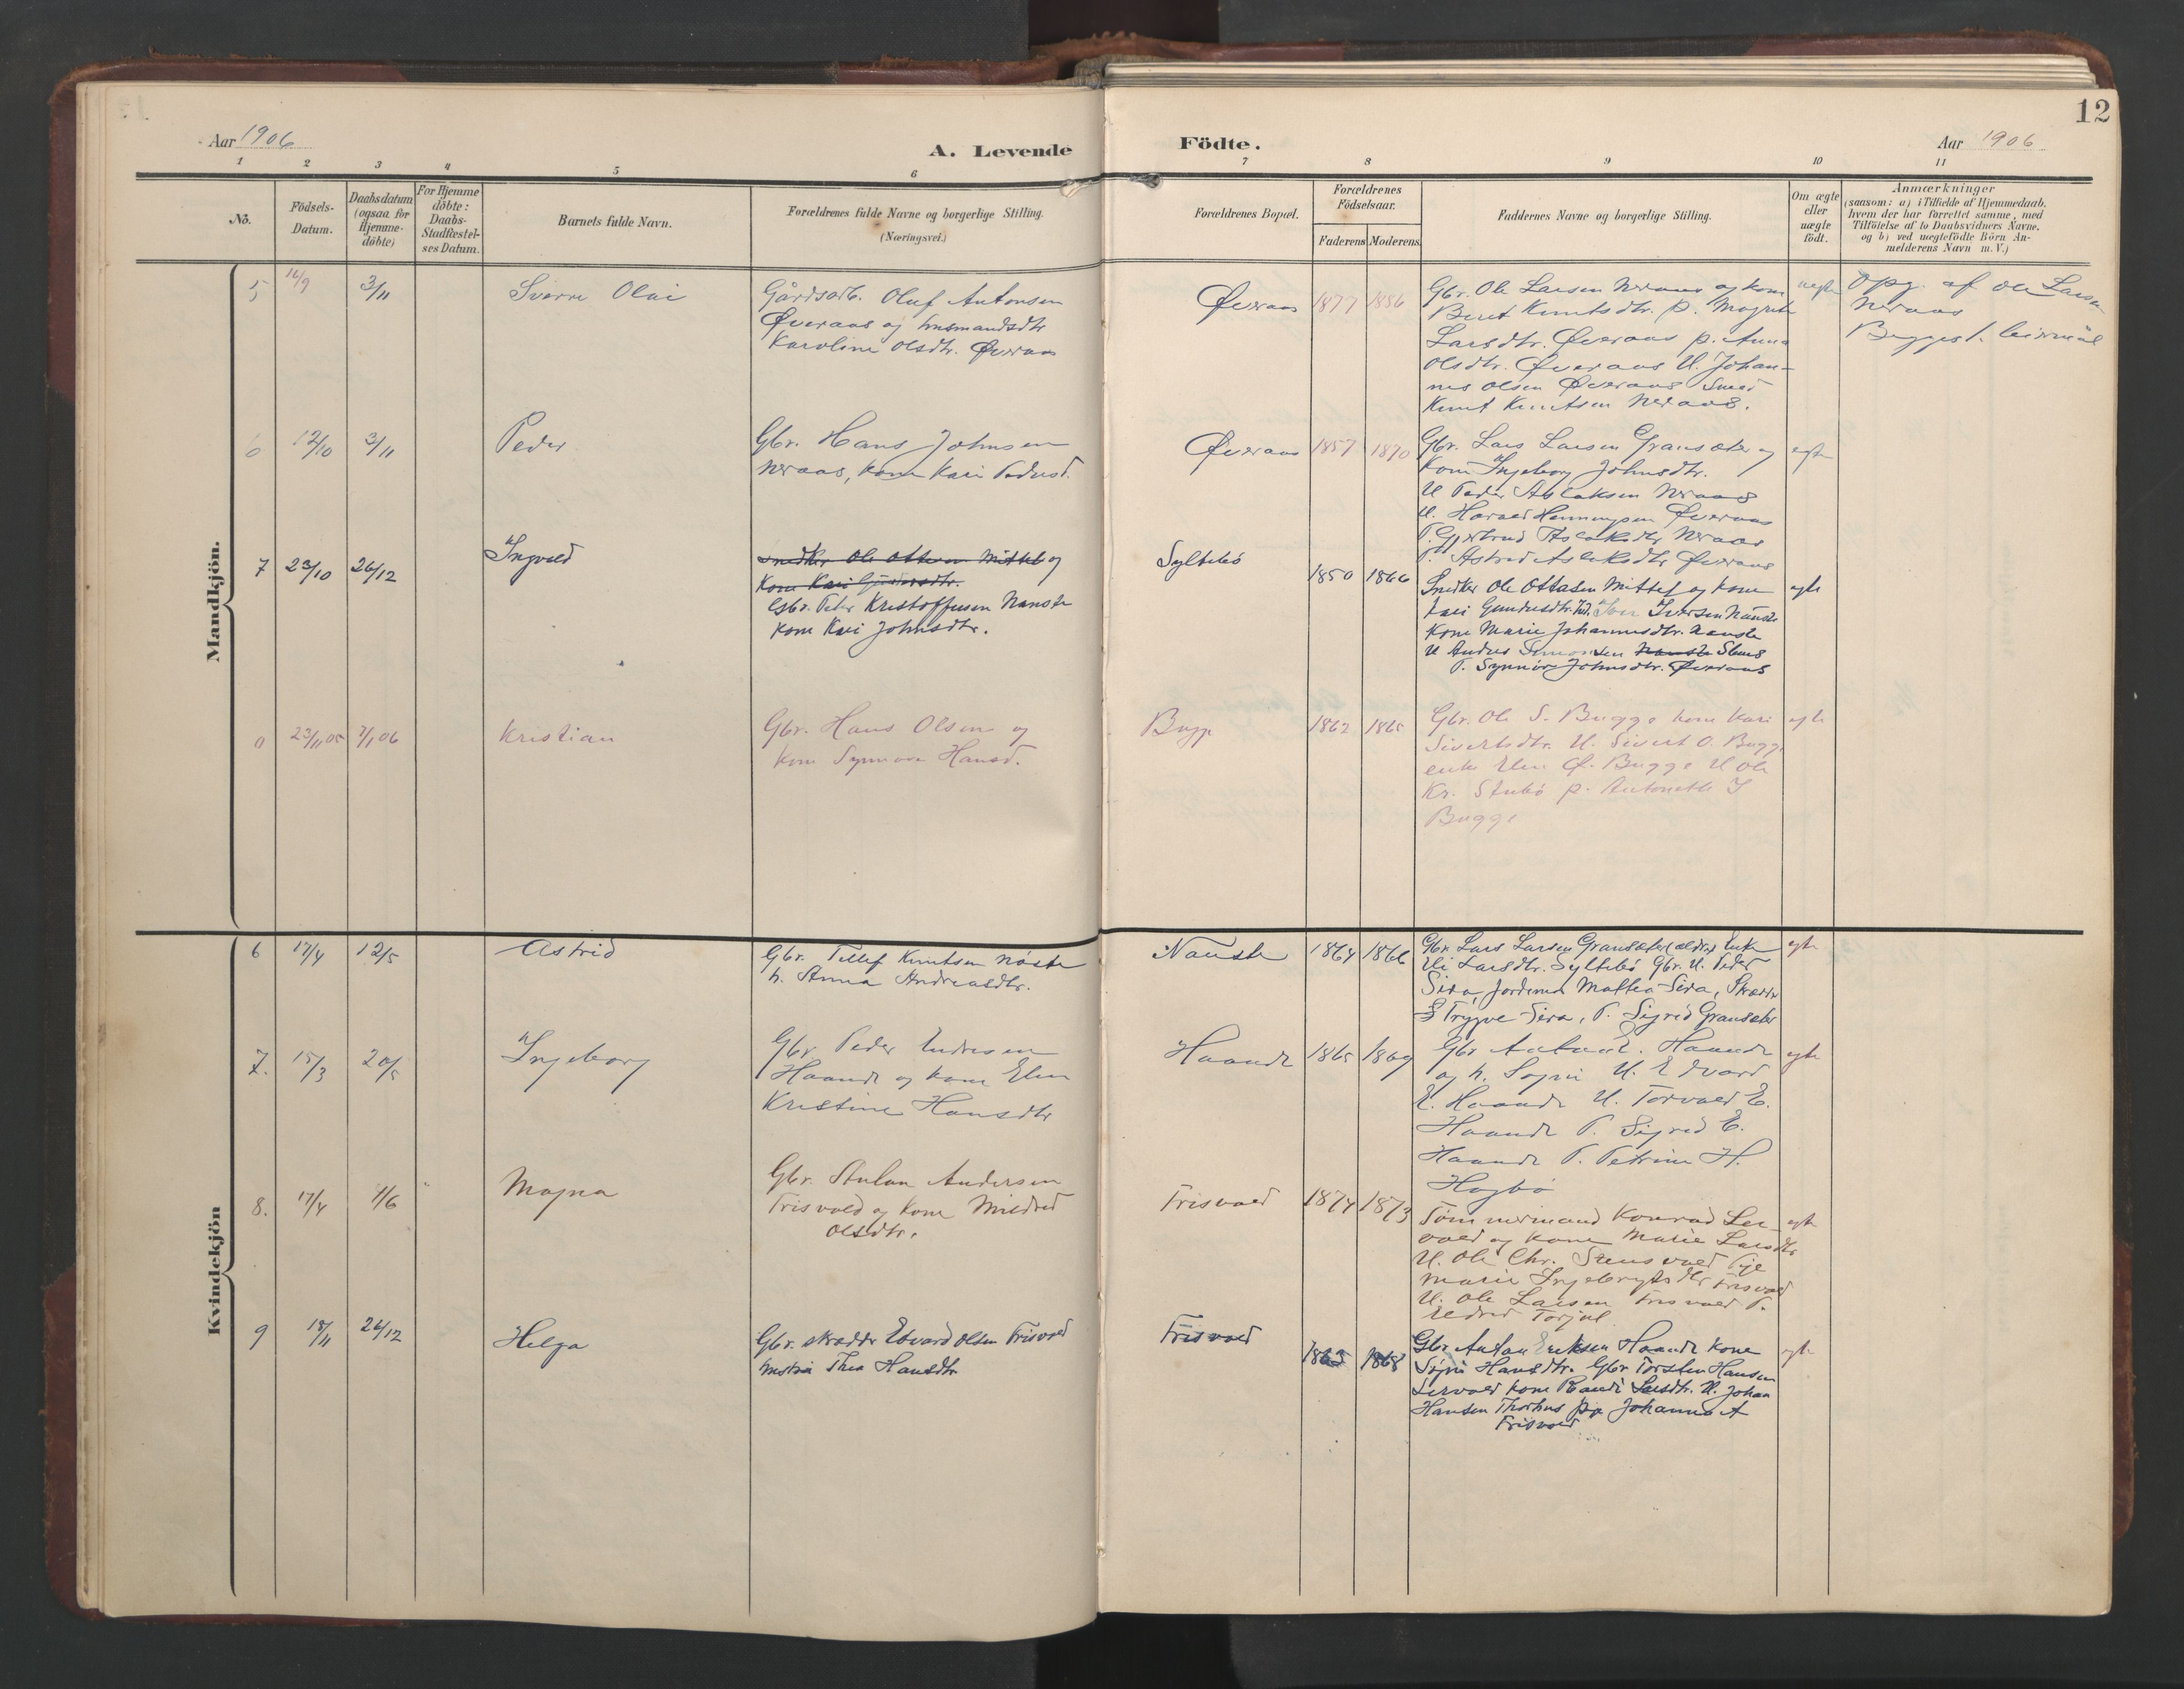 12
Aar 1906
A. Levende Födte.
Aar 1906
1 2 3 4 5 6 7 8 9 10 11
Nö.
Födsels-
Datum.
Daabsdatum
(ogsaa for
Hjemme-
döbte)
For Hjemme
döbte:
Daabs-
Stadfæstel-
ses Datum.
Barnets fulde Navn.
Forældrenes fulde Navne og borgerlige Stilling.
(Næringsvei.)
Forældrenes Bopæl.
Forældrenes
Födselsaar.
Faderens
Moderens
Faddernes Navne og borgerlige Stilling.
Om ægte
eller
uægte
födt.
Anmærkninger
(saasom: a) i Tilfælde af Hjemmedaab.
hvem der har forrettet samme, med
Tilföielse af to Daabsvidners Navne.
og b) ved uægtefödte Börn An-
melderens Navn m.V.)
Mandkjön.
5 16/9 3/11 Sverre Olai
Gårdsarb. Oluf Antonsen
Øveraas og husmandsdtr
Karoline Olsdtr. Øveraas
Øveraas 1877 1886
Gbr. Ole Larsen Neraas og kone
Beret Knutsdtr. P. Magrete
Larsdtr. Øveraas p. Anna
Olsdtr. Øveraas U. Johan-
nes Olsen Øveraas
Knut Knutsen Neraas.
uegte
Opg. af Ole Larsen
Neraas
Begges 1. leirmål
6 12/10 3/11 Peder
Gbr. Hans Johnsen
Neraas, kone Kari Pedersd.
Øveraas 1857 1870
Gbr. Lars Larsen Gransæter og
kone Ingeborg Johnsdtr.
U Peder Aslaksen Neraas
U. Harald Henningsen Øveraas
P. Gjertrud Aslaksdtr Neraas
P. Astrid Aslaksdtr Øveraas
egte
7 23/10 26/12 Ingvald
Snedker Ole Ottesen Mittet og
Kone Kari Gundersdtr.
Gbr. Peter Kristoffersen Nauste
kone Kari Johnsdtr.
Syltebö 1850 1866
Snedker Ole Ottesen Mittet og kone
Kari Gundersdtr. Iver Iversen Nauste
Kone Marie Johannesdtr. Nauste
U Anders Simonsen Nauste
P. Synnöv Johnsdtr. Øveraas
egte
23/11 05 7/1 06 Kristian
Gbr. Hans Olsen og
kone Synnove Hansd.
Bugge 1862 1865
Gbr. Ole S. Bugge kone Kari
Sivertsdtr. U. Sivert O. Bugge
enke Elen Ø. Bugge U Ole
Kr. Stubö p. Antonette I
Bugge
egte
Kvindekjön
6 17/4 12/5 Astrid
Gbr. Tellef Knutsen Nöste
h. Anna Andreasdtr.
Nauste 1864 1866
Gbr. Lars Larsen Gransæter (ældre) Enke
Eli Larsdtr. Syltebö Gbr. U. Peder
Sira, Jordemor Mattea Sira,
Trygve Sira, P. Sigrid Gransæter
egte
7. 15/3 20/5 Ingeborg
Gbr Peder Endresen
Haande og kone Elen
Kristine Hansdtr
Haande 1865 1869
Gbr Anton E. Haande
og h. Sigri U. Edvard
E. Haande U. Torvald E.
Haande P. Sigrid E.
Haande P. Petrine H.
Hagbö
egte
8. 17/4 1/6 Magna
Gbr. Anton Andersen
Frisvold og kone Mildrid
Olsdtr.
Frisvold 1874 1873
Tömmermand Konrad Ler-
vold og kone Marie Larsdtr
U. Ole Chr. Stensvold Pige
Marie Ingebrigtsdtr Frisvold
U. Ole Larsen Frisvold P.
Torjul
egte
9 18/11 26/12 Helga
Gbr. skrædder Edvard Olsen Frisvold
hustru Thea Hansdtr
Frisvold 1865 1868
Gbr Anton Eriksen Haande kone
Sigri Hansdtr. Gbr Torsten Hansen
Lervold kone Randi Larsdtr. U. Johan
Hansen Thorhus pige Johanna A
Frisvold
egte